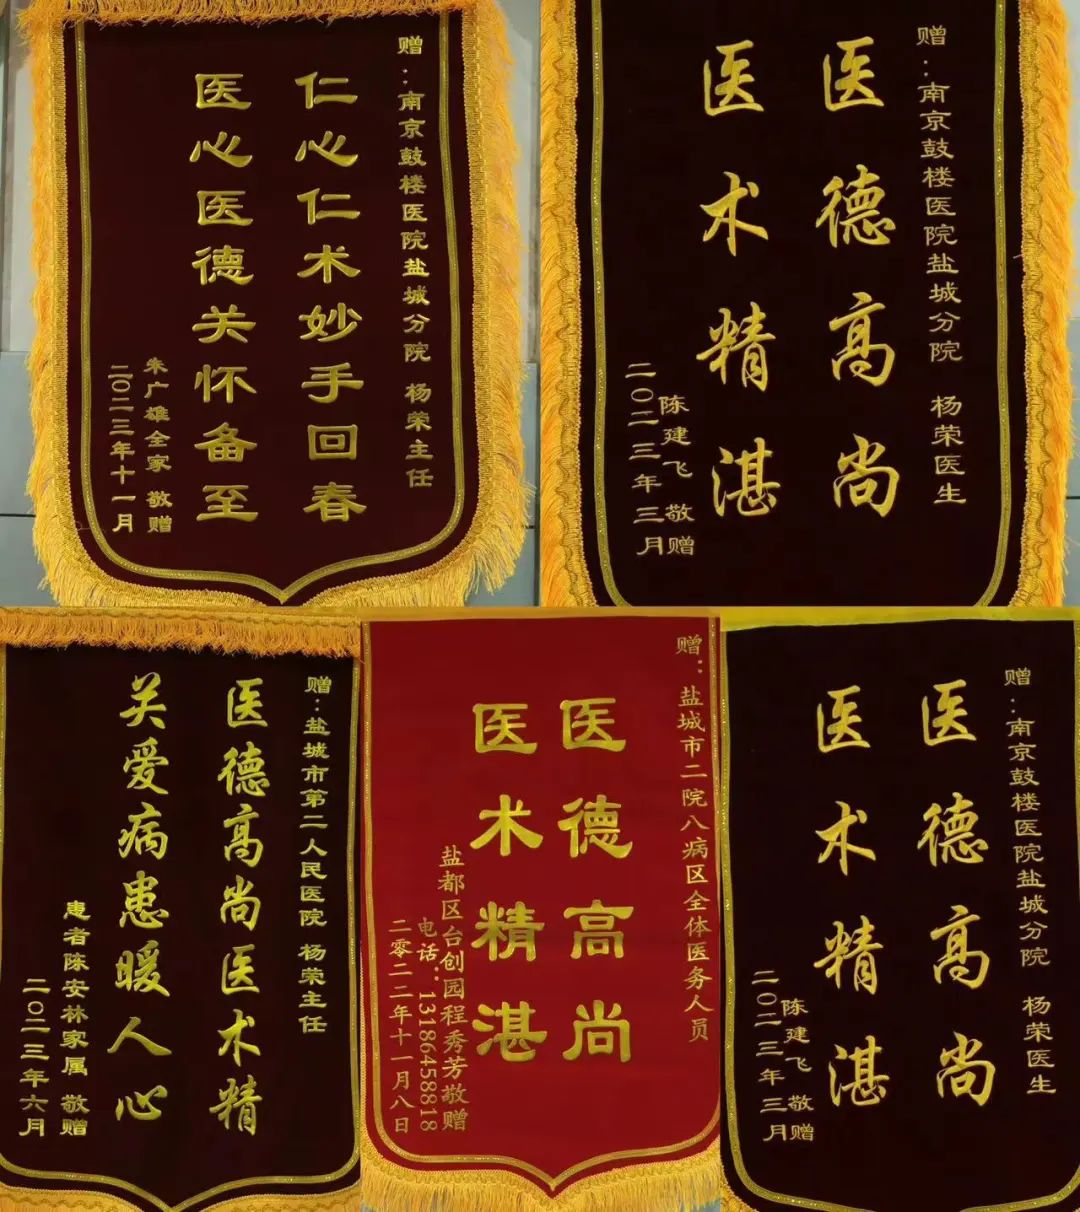 赠：南京鼓楼医院盐城分院 杨荣主任
仁心仁术妙手回春
医心医德关怀备至
朱广雄全家 敬赠
二〇二三年十一月
赠：南京鼓楼医院盐城分院 杨荣医生
医德高尚
医术精湛
陈建飞 敬赠
二〇二三年三月
赠：盐城市第二人民医院 杨荣主任
医德高尚医术精
关爱病患暖人心
患者陈安林家属 敬赠
二〇二三年六月
赠：盐城市二院八病区全体医务人员
医德高尚
医术精湛
盐都区台创园程秀芳敬赠
电话：13186458818
二零二二年十一月八日
赠：南京鼓楼医院盐城分院 杨荣医生
医德高尚
医术精湛
陈建飞 敬赠
二〇二三年三月